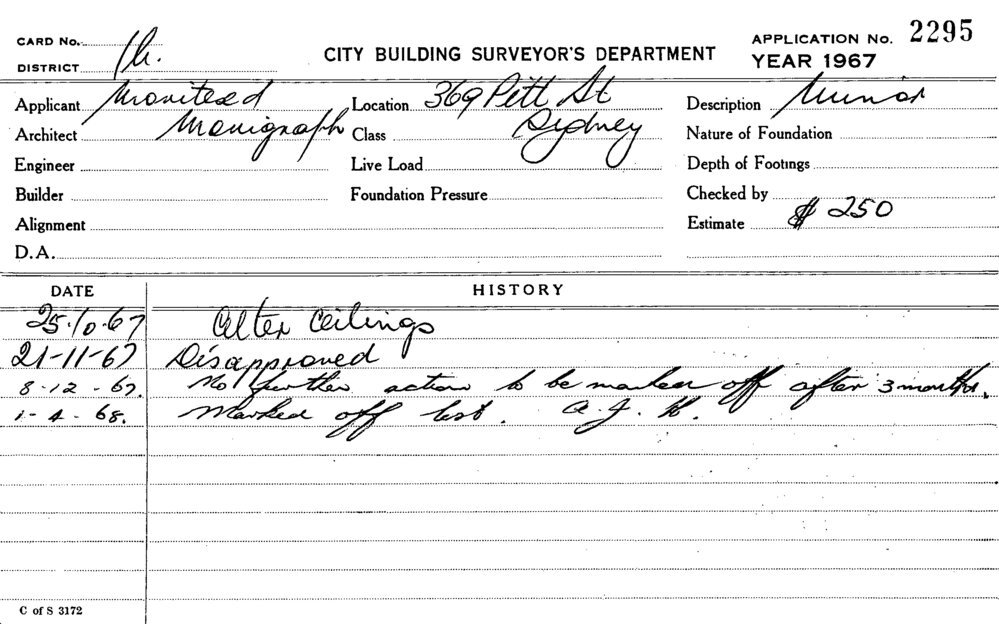 CARD No. APPLICATION No. 2295
DISTRICT CITY BUILDING SURVEYOR'S DEPARTMENT YEAR 1967
Applicant Location 369 Pitt St Description Minor
Architect Monigraph Class Sydney Nature of Foundation
Engineer Live Load Depth of Footings
Builder Foundation Pressure Checked by
Alignment Estimate $ 250
D.A.
DATE HISTORY
25.10.67 Alter Ceilings
21-11-67 Disapproved
8-12-67. No further action to be marked off after 3 months.
1-4-68. Marked off list. A.J.K.
C of S 3172